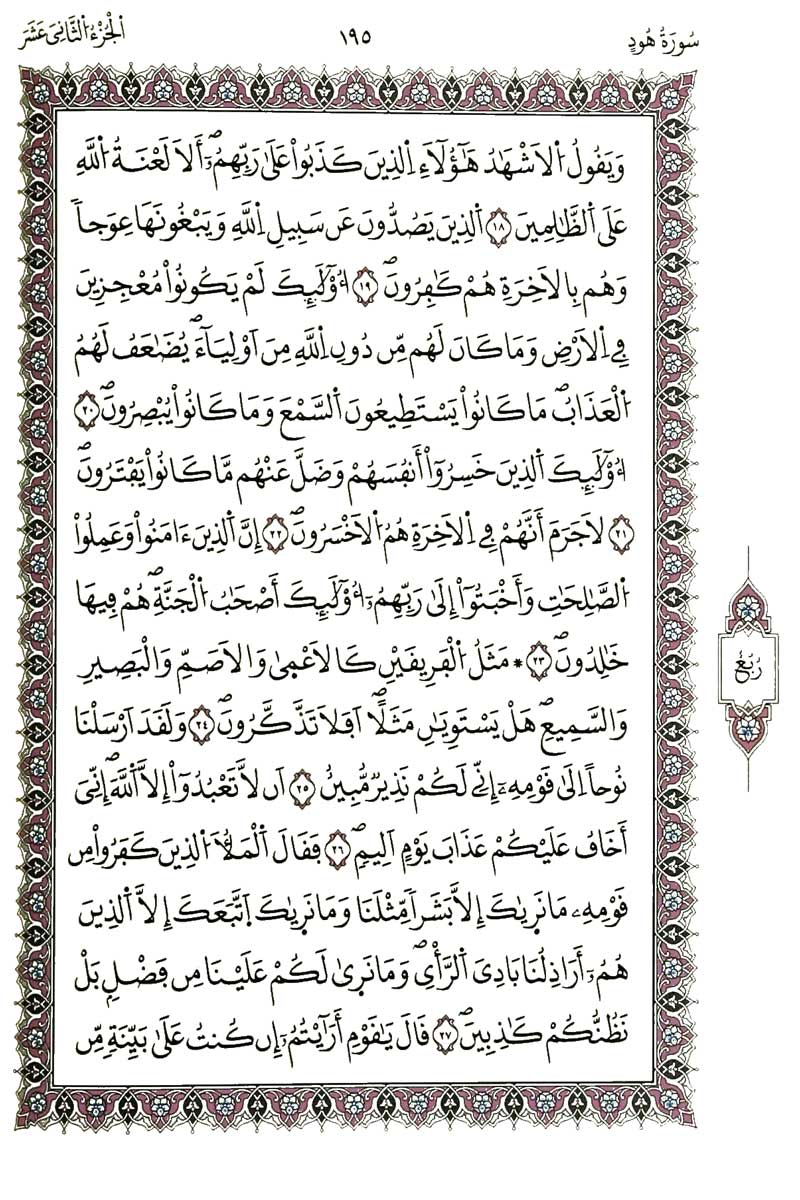 سُورَةُ هُودٍ ١٩٥ اَلْجُزْءُ الثَّانِيَ عَشَرَ
وَيَقُولُ اُلَاشْهَٰدُ هَٰٓؤُلَآءِ اِلذِينَ كَذَبُواْ عَلَىٰ رَبِّهِمُۥٓۖ أَلَا لَعْنَةُ اُللَّهِ
عَلَى اَلظَّٰلِمِينَ ١٨ اَلذِينَ يَصُدُّونَ عَن سَبِيلِ اِللَّهِ وَيَبْغُونَهَا عِوَجاٗ
وَهُم بِالَاخِرَةِ هُمْ كَٰفِرُونَۖ ١٩ أُوْلَٰٓئِكَ لَمْ يَكُونُواْ مُعْجِزِينَ
فِے اِلَارْضِ وَمَا كَانَ لَهُم مِّن دُونِ اِللَّهِ مِنَ اَوْلِيَآءَۖ يُضَٰعَفُ لَهُمُ
اُلْعَذَابُۖ مَا كَانُواْ يَسْتَطِيعُونَ اَلسَّمْعَ وَمَا كَانُواْ يُبْصِرُونَۖ ٢٠
أُوْلَٰٓئِكَ اَلذِينَ خَسِرُوٓاْ أَنفُسَهُمْ وَضَلَّ عَنْهُم مَّا كَانُواْ يَفْتَرُونَۖ
٢١ لَا جَرَمَ أَنَّهُمْ فِے اِلَاخِرَةِ هُمُ اُلَاخْسَرُونَۖ ٢٢ إِنَّ اَلذِينَ ءَامَنُواْ وَعَمِلُواْ
اُلصَّٰلِحَٰتِ وَأَخْبَتُوٓاْ إِلَىٰ رَبِّهِمُۥٓ أُوْلَٰٓئِكَ أَصْحَٰبُ اُلْجَنَّةِۖ هُمْ فِيهَا
خَٰلِدُونَۖ ٢٣ ۞ مَثَلُ اُلْفَرِيقَيْنِ كَالَاعْمَىٰ وَالَاصَمِّ وَالْبَصِيرِ
وَالسَّمِيعِۖ هَلْ يَسْتَوِيَٰنِ مَثَلاًۖ اَفَلَا تَذَّكَّرُونَۖ ٢٤ وَلَقَدَ اَرْسَلْنَا
نُوحاً اِلَىٰ قَوْمِهِۦٓ إِنِّے لَكُمْ نَذِيرٞ مُّبِينٌ ٢٥ اَن لَّا تَعْبُدُوٓاْ إِلَّا اَللَّهَۖ إِنِّيَ
أَخَافُ عَلَيْكُمْ عَذَابَ يَوْمٍ اَلِيمٖۖ ٢٦ فَقَالَ اَلْمَلَأُ اُلذِينَ كَفَرُواْ مِن
قَوْمِهِۦ مَا نَرَىٰكَ إِلَّا بَشَراٗ مِّثْلَنَا وَمَا نَرَىٰكَ اَتَّبَعَكَ إِلَّا اَلذِينَ
هُمُۥٓ أَرَاذِلُنَا بَادِيَ اَلرَّأْيِۖ وَمَا نَرَىٰ لَكُمْ عَلَيْنَا مِن فَضْلِۢ بَلْ
نَظُنُّكُمْ كَٰذِبِينَۖ ٢٧ قَالَ يَٰقَوْمِ أَرَٰٓيْتُمُۥٓ إِن كُنتُ عَلَىٰ بَيِّنَةٖ مِّن
رُبُعُ